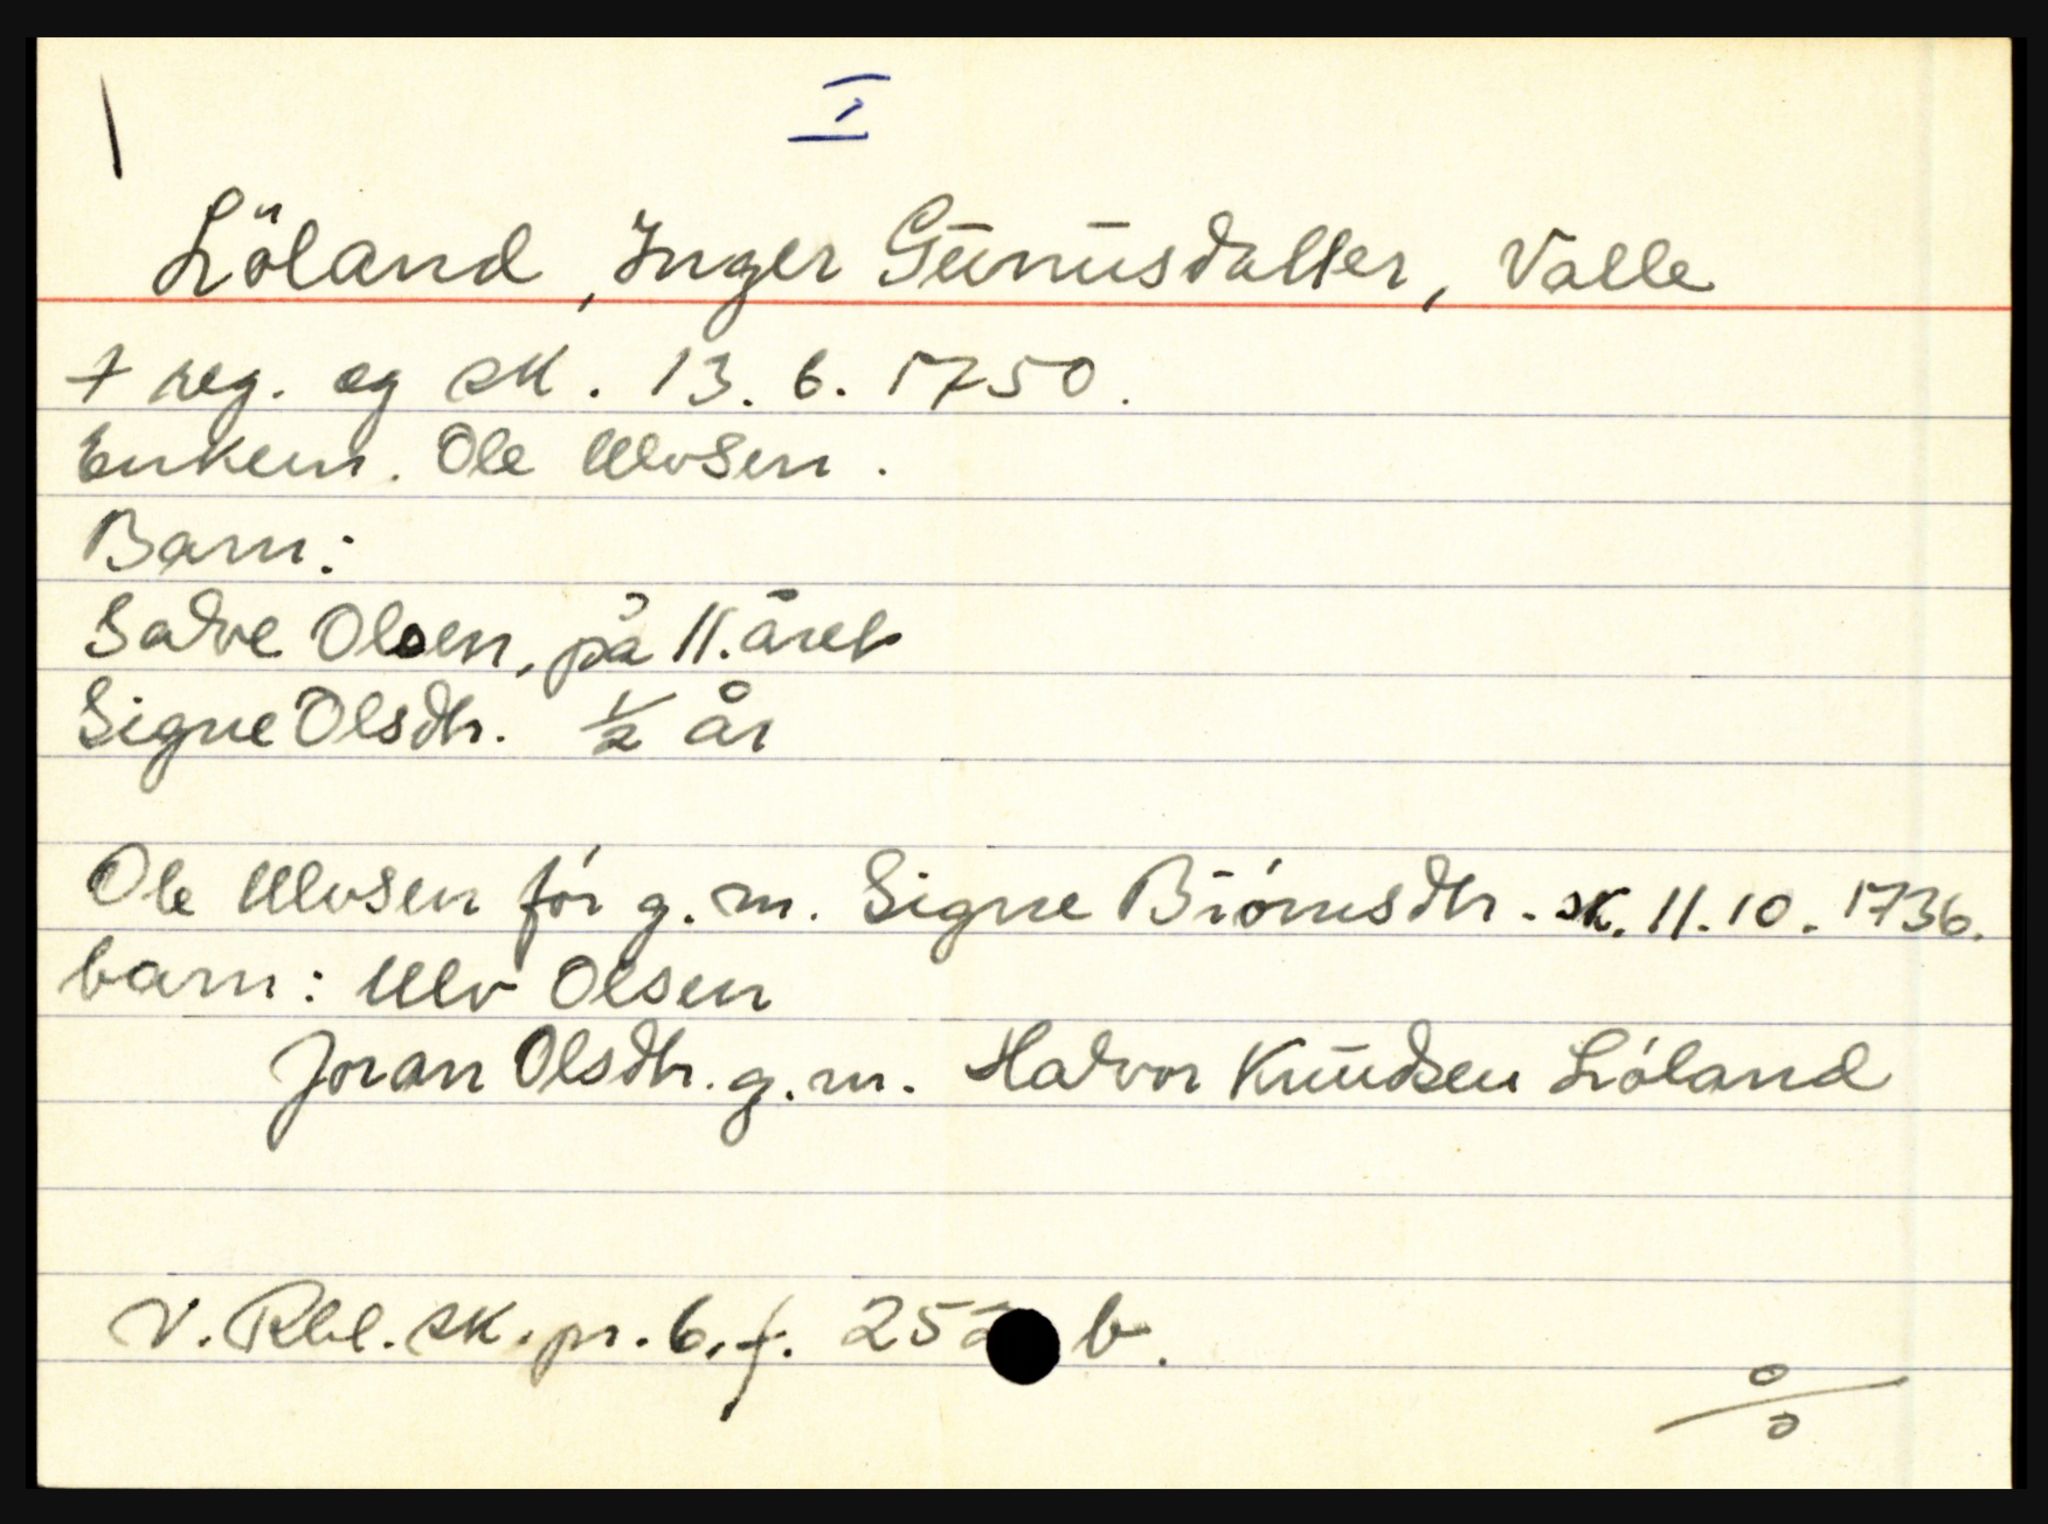 I
Löland, Inger Gunusdatter, Valle
† reg. og sk. 13. 6. 1750.
Enkem. Ole Ulvsen.
Barn:
Salve Olsen, på 11. året
Signe Olsdtr. 1/2 år
Ole Ulvsen för g. m. Signe Biörnsdtr. sk. 11. 10. 1736.
barn: Ulv Olsen
Joran Olsdtr. g. m. Halvor Knudsen Liöland
V. Rbl. sk. pr. 6. f. 252 b.